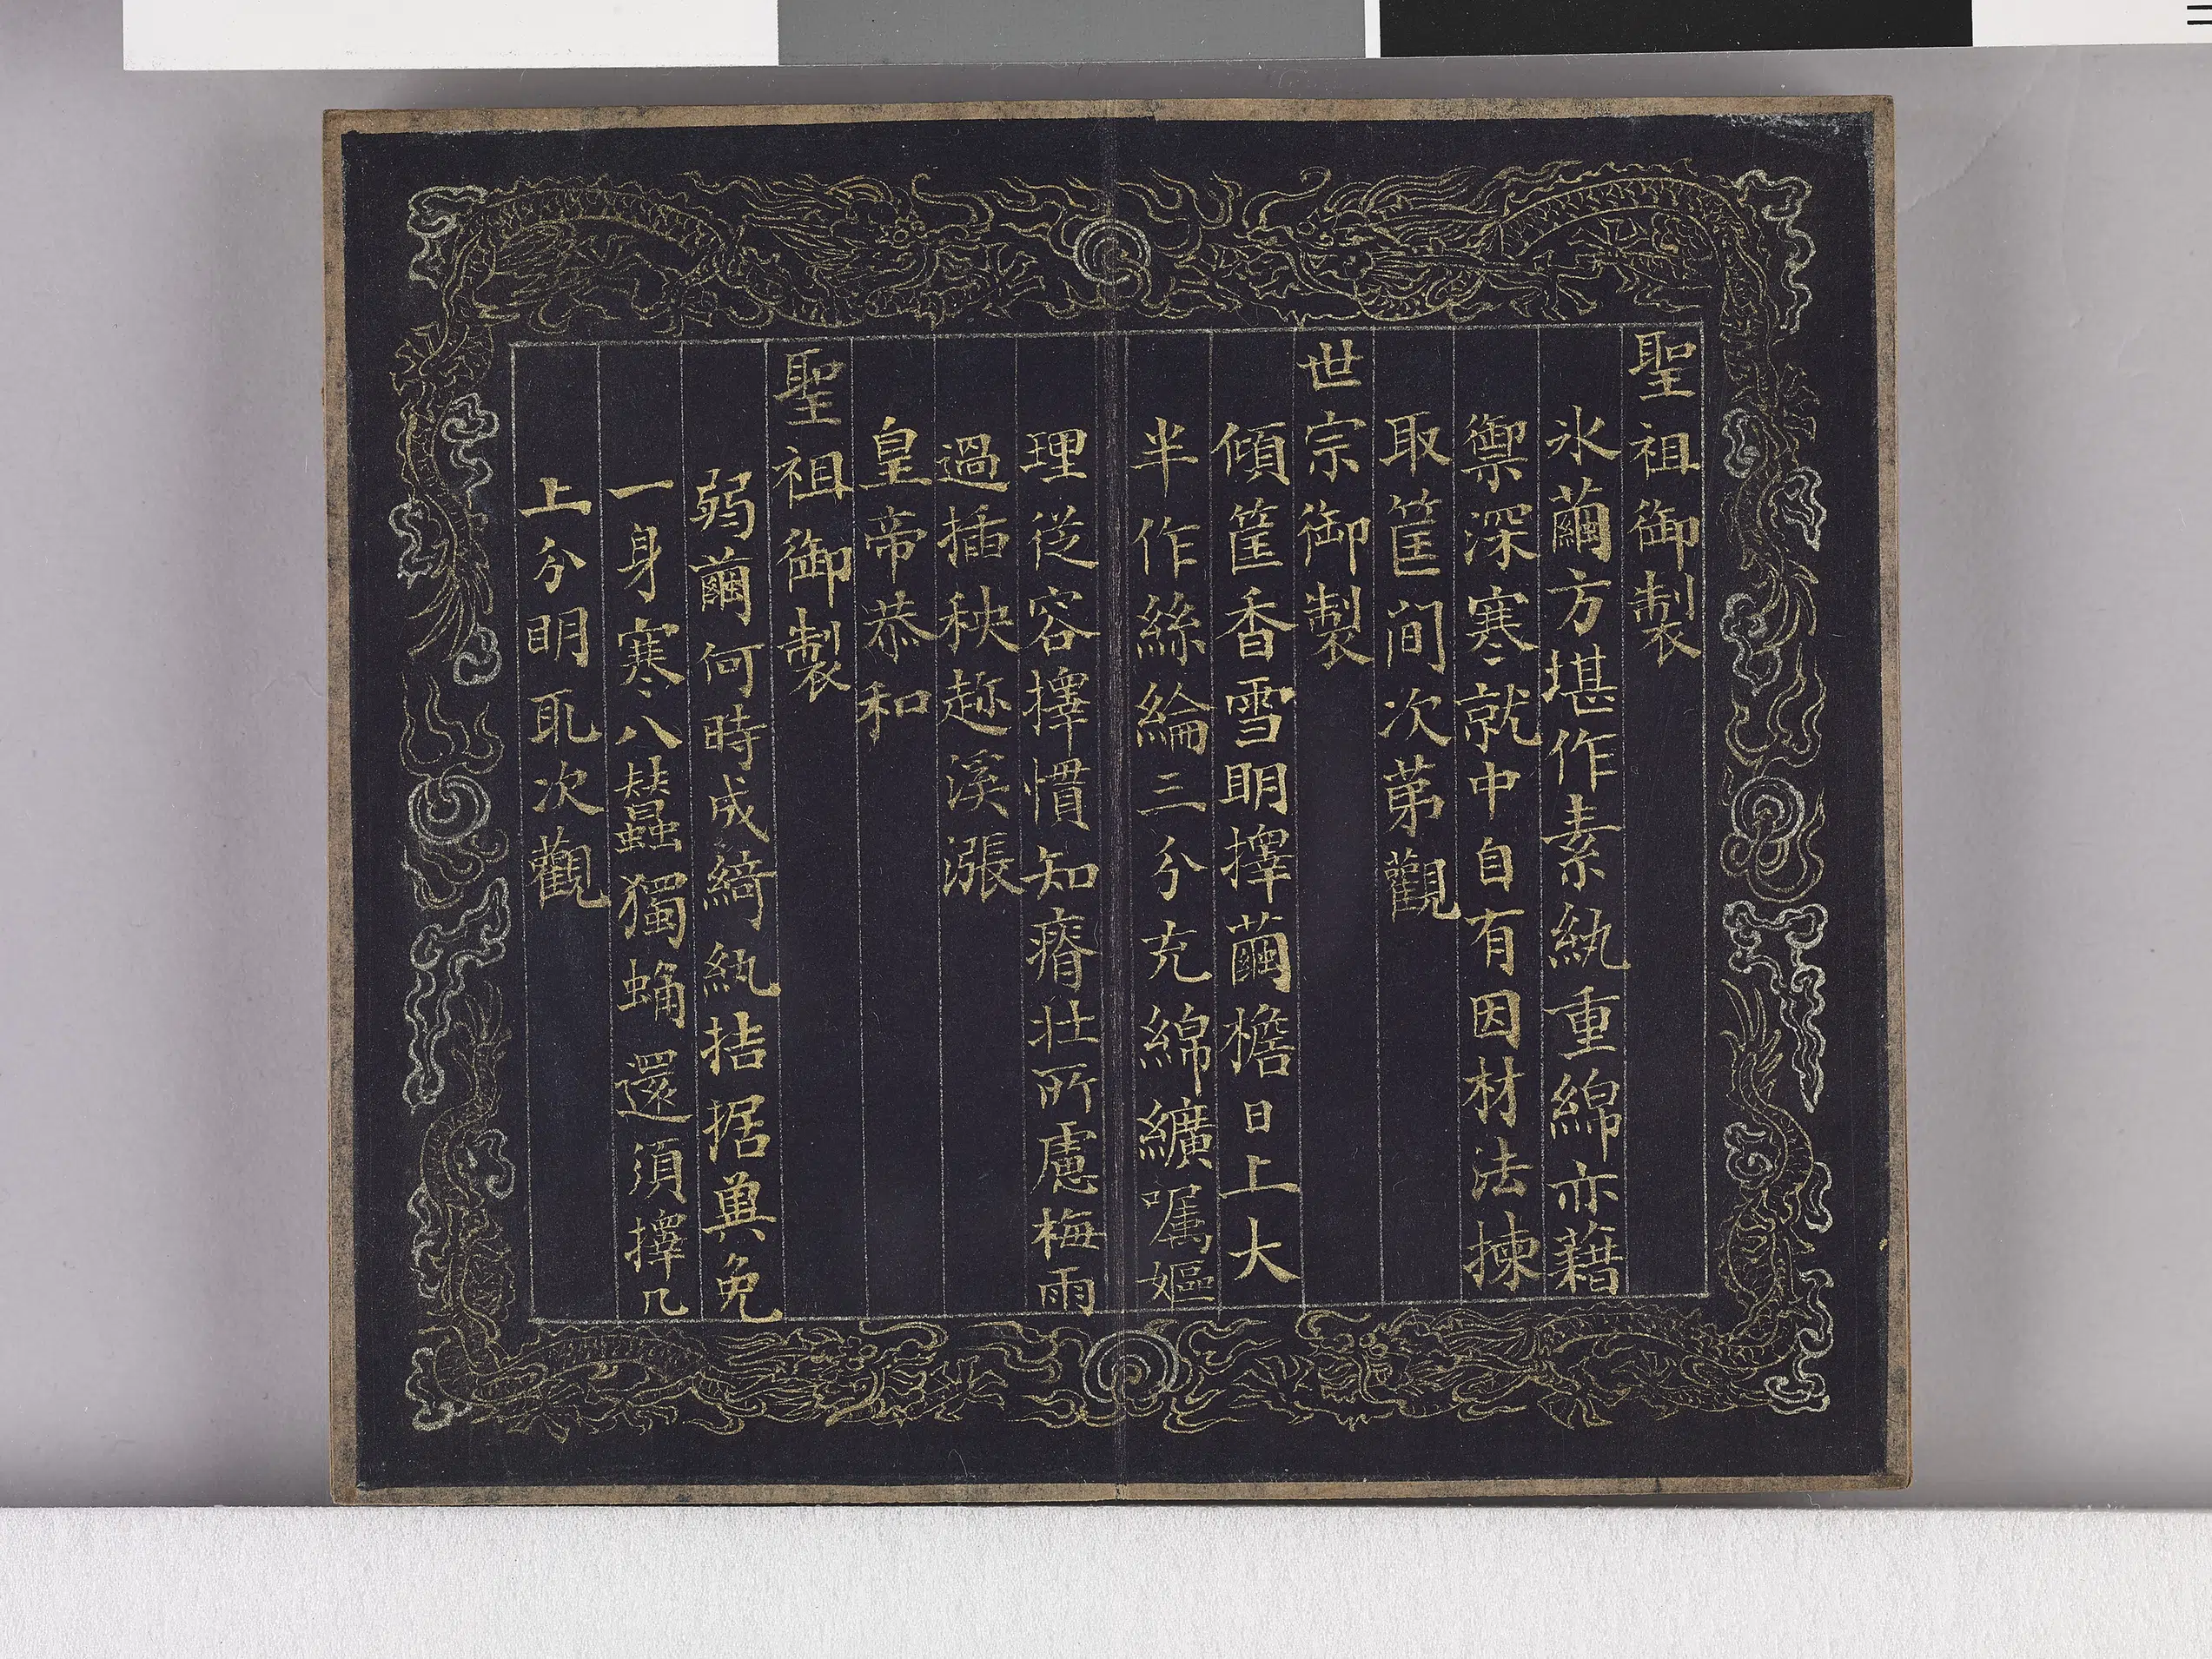 聖祖御製
氷繭方堪作素紈重綿亦藉
禦深寒就中自有因材法揀
取筐间次苐觀
世宗御製
傾筐香雪明擇繭檐日上大
半作絲綸三分充綿纊嘱嫗
理従容擇慣知瘠壮所慮梅雨
過插秧趂溪漲
皇帝恭和
聖祖御製
弱繭何時成綺紈拮据兾免
一身寒八蠶獨蛹還須擇几
上分明取次觀